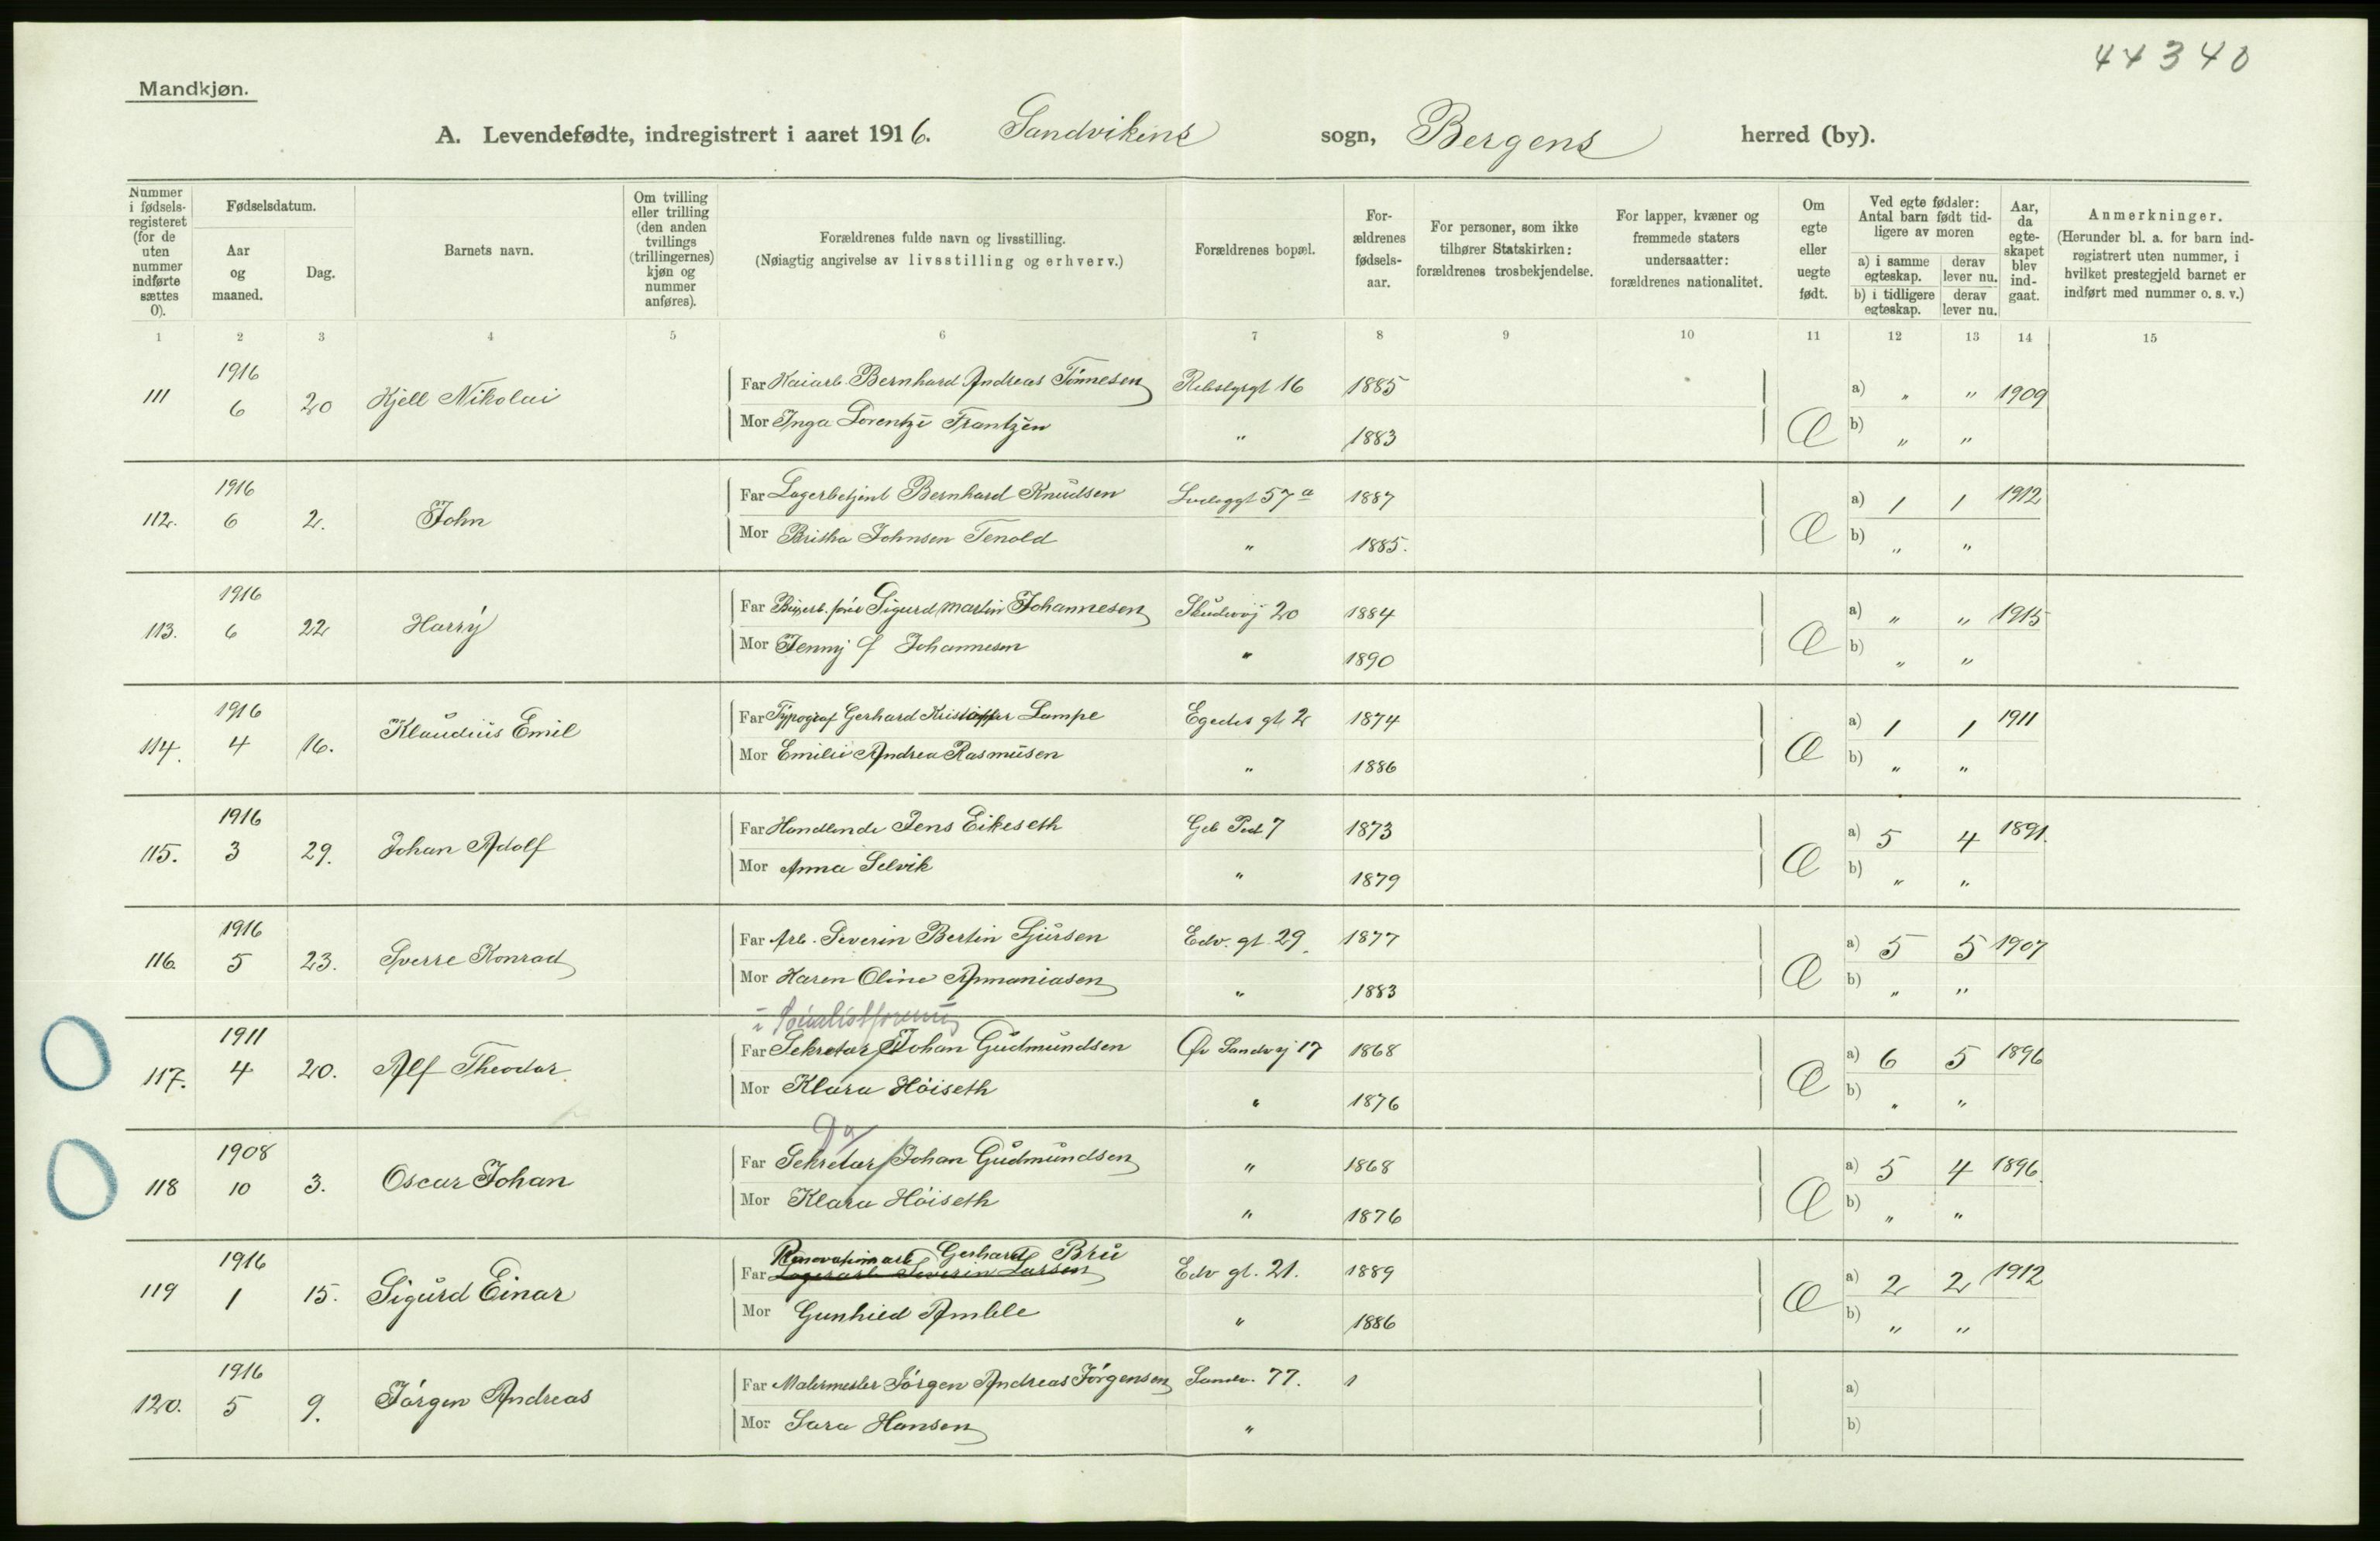 44340
Mandkjøn.
A. Levendefødte, indregistrert i aaret 1916. Sandvikens sogn, Bergens herred (by).
Nummer i fødsels-registeret (for de uten nummer indførte sættes 0).
Fødselsdatum.
Aar og maaned.
Dag.
Barnets navn.
Om tvilling eller trilling (den anden tvillings (trillingernes) kjøn og nummer anføres).
Forældrenes fulde navn og livsstilling.
(Nøiagtig angivelse av livsstilling og erhverv.)
Forældrenes bopæl.
For-ældrenes fødsels-aar.
For personer, som ikke tilhører Statskirken: forældrenes trosbekjendelse.
For lapper, kvæner og fremmede staters undersaatter: forældrenes nationalitet.
Om egte eller uegte født.
Ved egte fødsler: Antal barn født tid-ligere av moren
a) i samme egteskap.
derav lever nu.
b) i tidligere egteskap.
derav lever nu.
Aar, da egte-skapet blev ind-gaat.
Anmerkninger.
(Herunder bl. a. for barn ind-registrert uten nummer, i hvilket prestegjeld barnet er indført med nummer o. s. v.)
1 2 3 4 5 6 7 8 9 10 11 12 13 14 15
111 1916 6 20 Kjell Nikolai Far Kaiarb. Bernhard Andreas Tönnesen Rebslyrgt 16 1885 Æ a) " " 1909
Mor Inga Lorentze Frantzen " 1883 b) " "
112. 1916 6 2. John Far Lagerbetjent Bernhard Knudsen 57 a 1887 Æ a) 1 1 1912
Mor Johnsen Tenold " 1885. b) " "
113. 1916 6 22 Harry Far Sigurd Martin Johannesen Skudevij 20 1884 Æ a) " " 1915
Mor Jenny f Johannesen " 1890 b) " "
114. 1916 4 16. Klaudius Emil Far Typograf Gerhard Kristoffer Lampe Egedes gt 2 1874 Æ a) 1 1 1911
Mor Emilie Andrea Rasmusen " 1886 b) " "
115. 1916 3 29. Johan Adolf Far Handlende Jens Eikeseth 7 1873 Æ a) 5 4 1891.
Mor Anna Selvik " 1879 b) " "
116. 1916 5 23. Sverre Konrad Far Arb. Severin Bertin Gjursen Edv. gt. 29. 1877 Æ a) 5 5 1907
Mor Karen Oline Ammaniasen " 1883 b) " "
i Socialistforening
117. 1911 4 20. Alf Theodor Far Sekretær Johan Gudmundsen Øv Sandvj 17 1868 Æ a) 6 5 1896
Mor Klara Höiseth " 1876 b) " "
Do
118 1908 10 3. Oscar Johan Far Sekretær Johan Gudmundsen " 1868 Æ a) 5 4 1896.
Mor Klara Höiseth " 1876 b) " "
Renovationsarb Gerhard Bru
119 1916 1 15. Sigurd Einar Far Lagerarb Severin Larsen Edv gt. 21. 1889 Æ a) 2 2 1912
Mor Gunhild Amble " 1886 b) " "
120. 1916 5 9. Jörgen Andreas Far Malermester Jörgen Andreas Jörgensen Sandv. 77. 1 a)
Mor Sara Hansen " b)